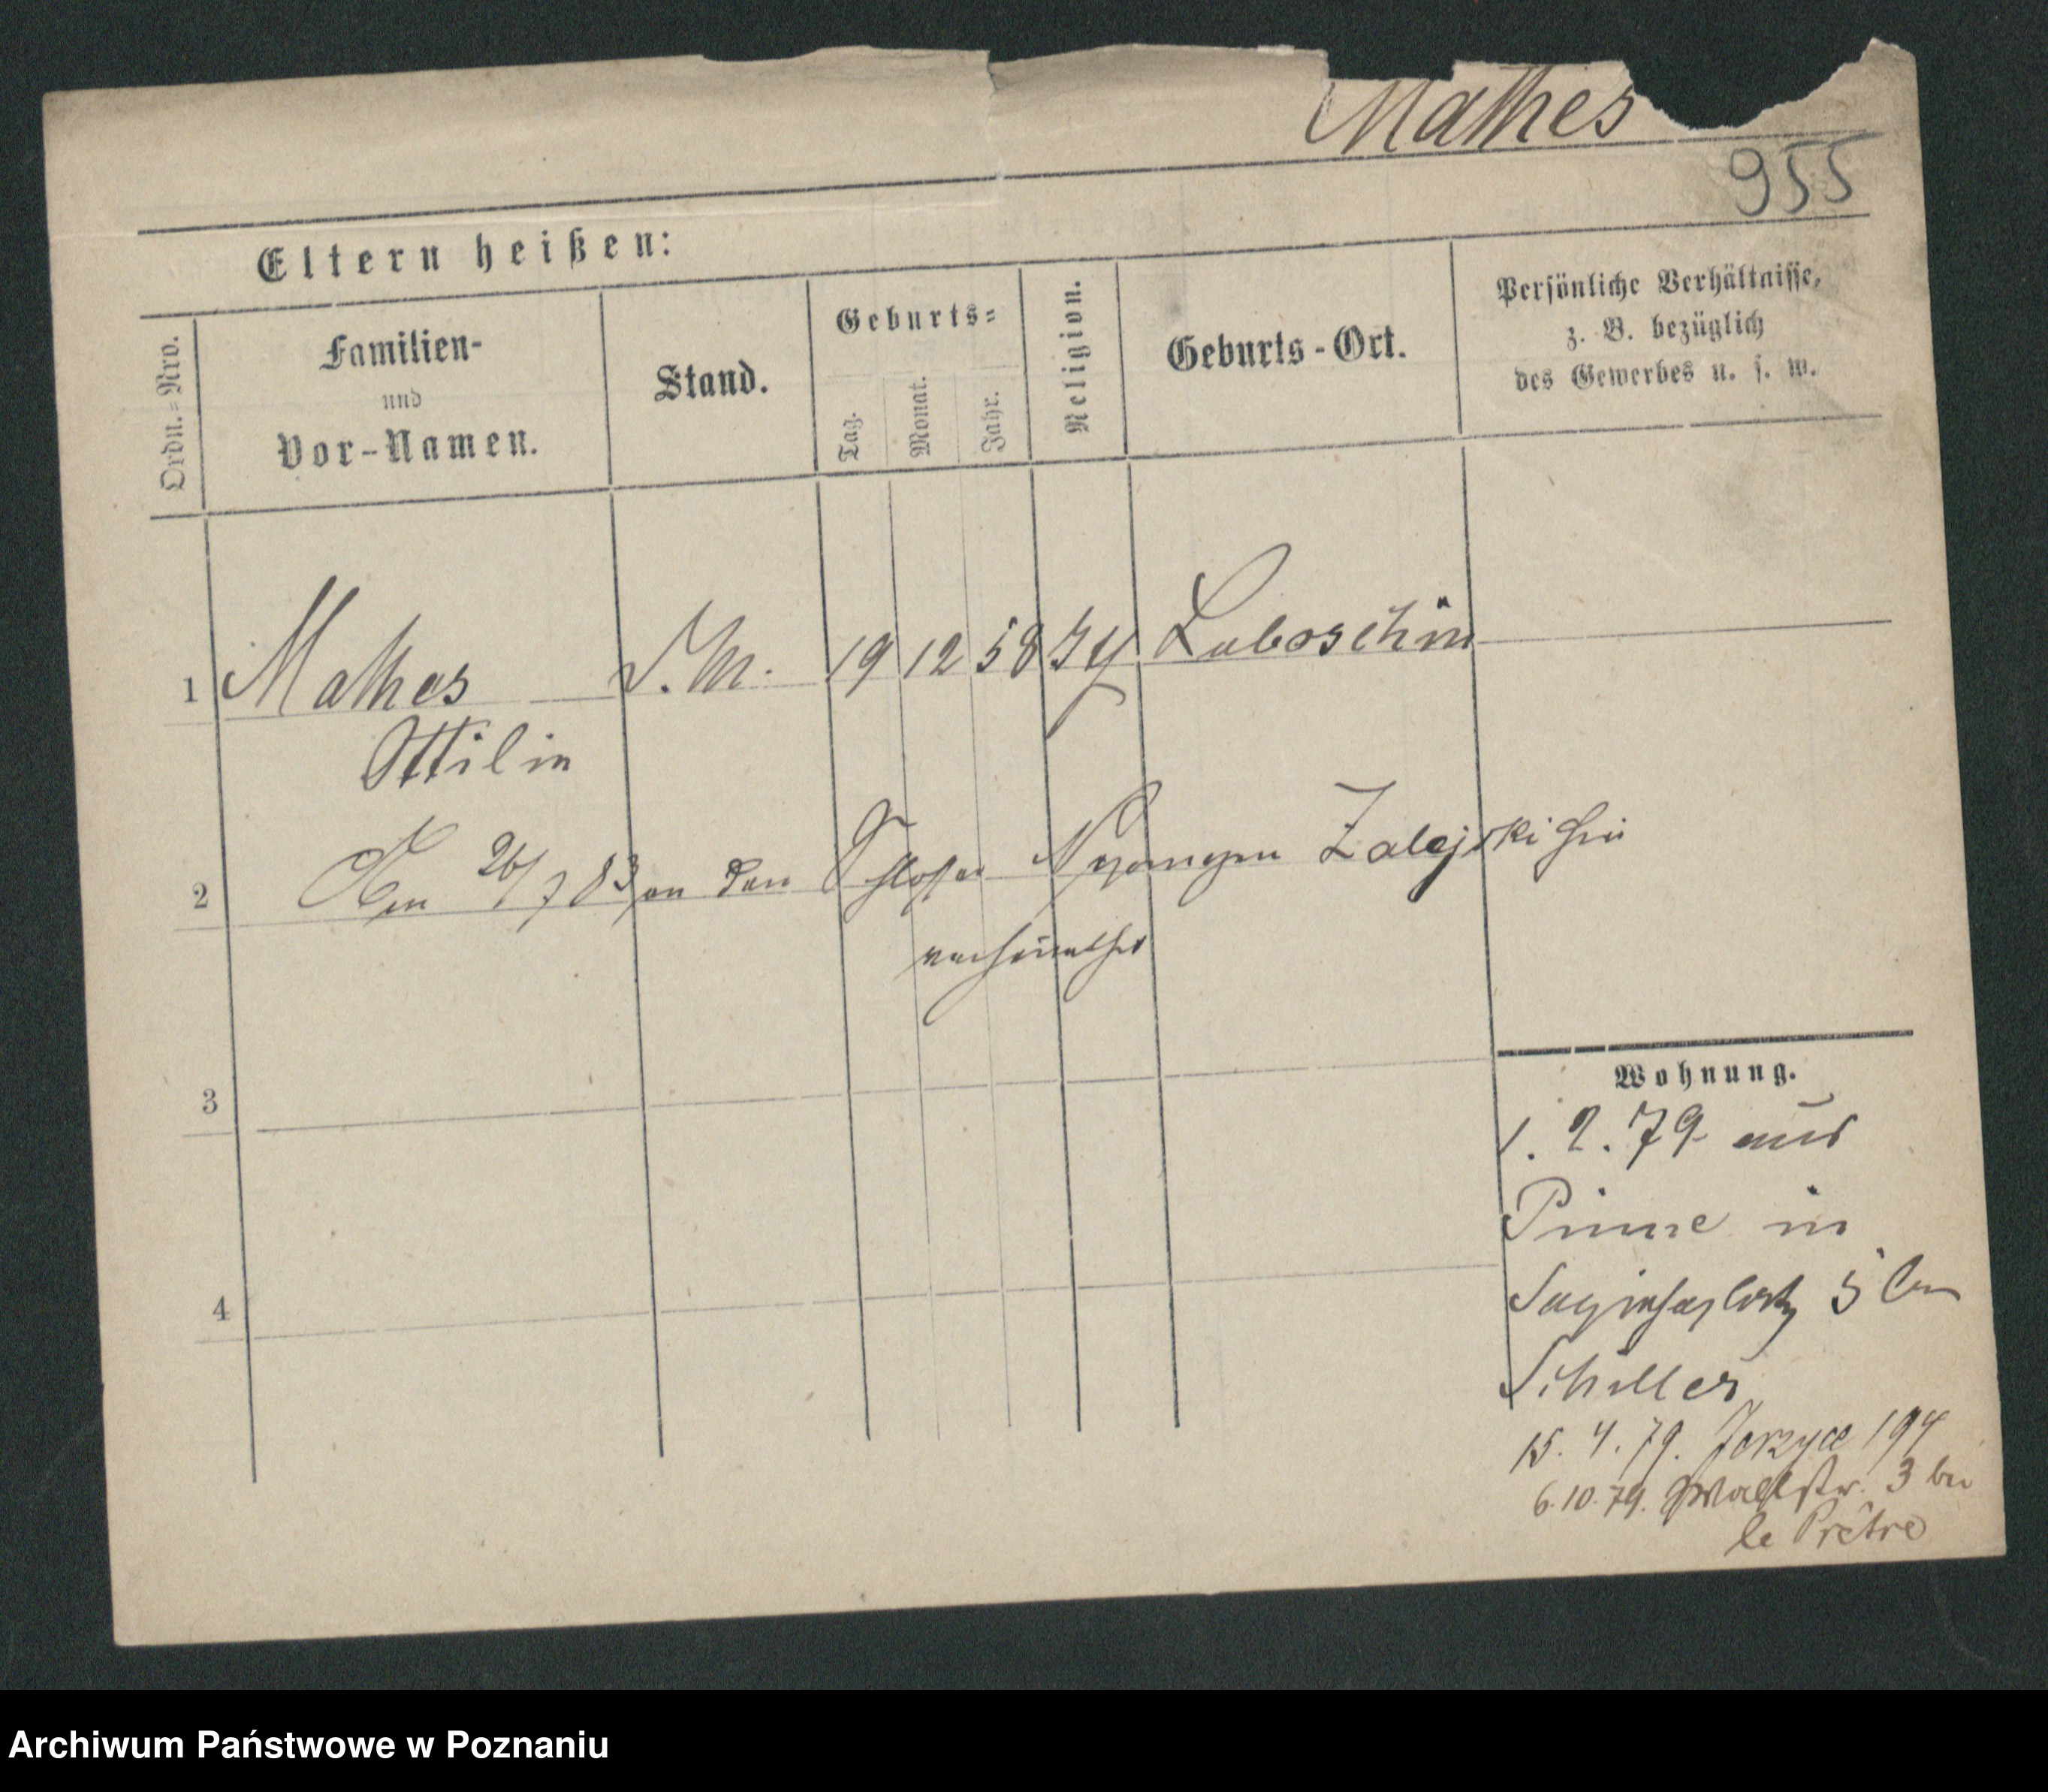 Mathes
955
Eltern heißen:
Ordn.=Nro.
Familien-
und
Vor-Namen.
Stand.
Geburts=
Tag.
Monat.
Jahr.
Religion.
Geburts-Ort.
Persönliche Verhältnisse,
z. B. bezüglich
des Gewerbes u. s. w.
1 Mathes D.M. 19 12 58 Luboschin
Ottilie
2 26/7 83 an den Zalejski hier
verheirathet
3
4
Wohnung.
1. 2. 79 aus
Pinne in
5 bei
Schiller
15. 4. 79. Jerzyce 194
6. 10. 79. Wallstr. 3 bei
le Prêtre
Archiwum Państwowe w Poznaniu